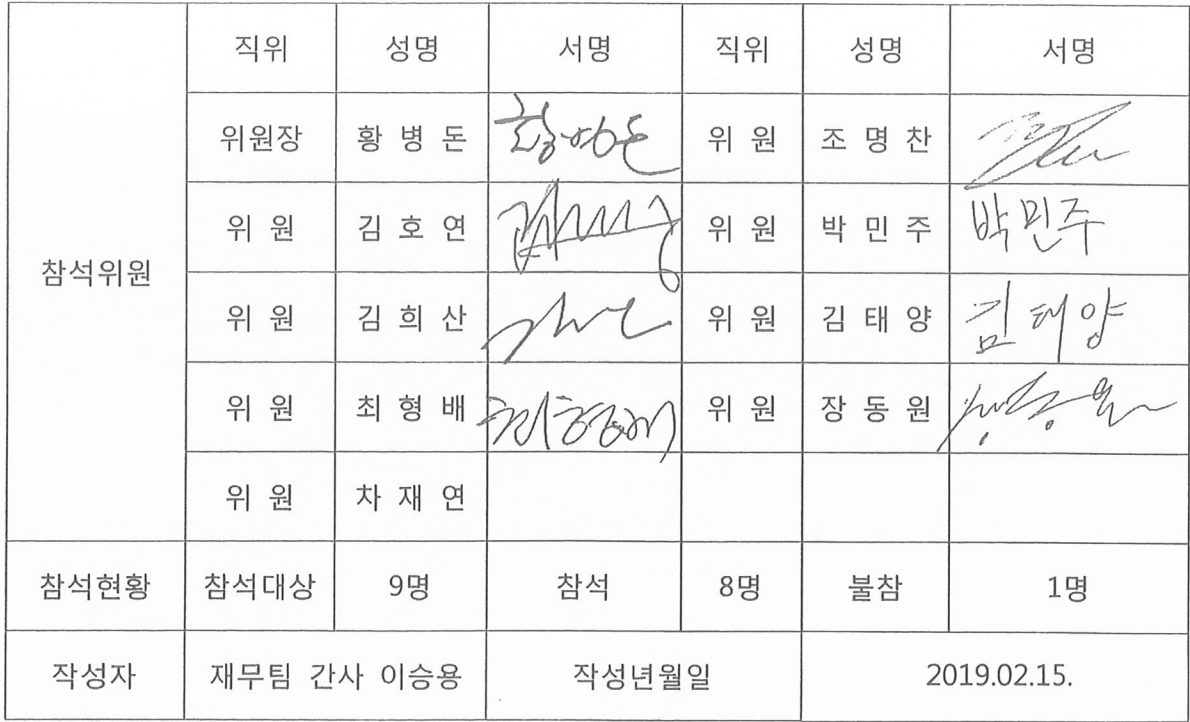 직위 성명 서명 직위 성명 서명
위원장 황 병 돈 황병돈 위 원 조 명 찬
위 원 김 호 연 위 원 박 민 주 박민주
참석위원
위 원 김 희 산 위 원 김 태 양 김태양
위 원 최 형 배 최형배 위 원 장 동 원 장동원
위 원 차 재 연
참석현황 참석대상 9명 참석 8명 불참 1명
작성자 재무팀 간사 이승용 작성년월일 2019.02.15.